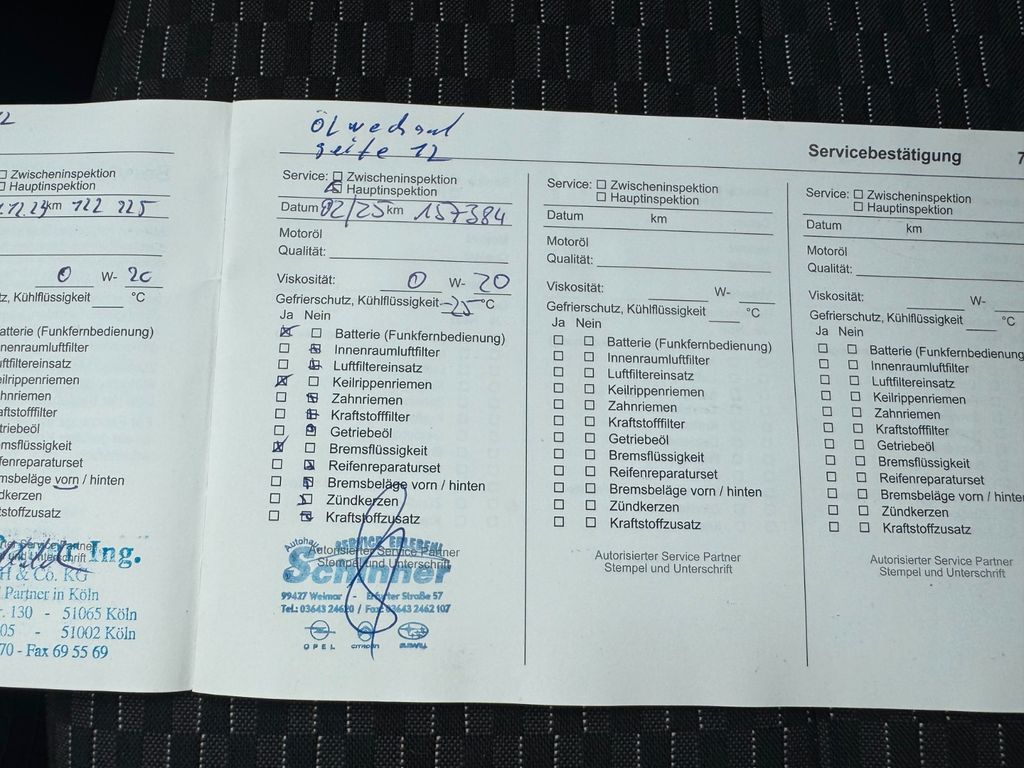 Zwischeninspektion
Hauptinspektion
km 122 225
0 W- 20
tz, Kühlflüssigkeit °C
atterie (Funkfernbedienung)
nenraumluftfilter
uftfiltereinsatz
eilrippenriemen
ahnriemen
aftstofffilter
etriebeöl
emsflüssigkeit
eifenreparaturset
emsbeläge vorn / hinten
ndkerzen
aftstoffzusatz
Ing.
H & Co. KG
Partner in Köln
r. 130 - 51065 Köln
05 - 51002 Köln
70 - Fax 69 55 69
Ölwechsel
Seite 12
Service: Zwischeninspektion
Hauptinspektion
Datum 02/25 km 157384
Motoröl
Qualität:
Viskosität: 0 W- 20
Gefrierschutz, Kühlflüssigkeit -25 °C
Ja Nein
Batterie (Funkfernbedienung)
Innenraumluftfilter
Luftfiltereinsatz
Keilrippenriemen
Zahnriemen
Kraftstofffilter
Getriebeöl
Bremsflüssigkeit
Reifenreparaturset
Bremsbeläge vorn / hinten
Zündkerzen
Kraftstoffzusatz
Autorisierter Service Partner
Stempel und Unterschrift
Autohaus
SERVICE ERLEBEN!
Schinner
99427 Weimar - Erfurter Straße 57
Tel.: 03643 24620 / Fax: 03643 2462 107
OPEL CITROËN SUBARU
Servicebestätigung 7
Service: Zwischeninspektion
Hauptinspektion
Datum km
Motoröl
Qualität:
Viskosität: W-
Gefrierschutz, Kühlflüssigkeit °C
Ja Nein
Batterie (Funkfernbedienung)
Innenraumluftfilter
Luftfiltereinsatz
Keilrippenriemen
Zahnriemen
Kraftstofffilter
Getriebeöl
Bremsflüssigkeit
Reifenreparaturset
Bremsbeläge vorn / hinten
Zündkerzen
Kraftstoffzusatz
Autorisierter Service Partner
Stempel und Unterschrift
Service: Zwischeninspektion
Hauptinspektion
Datum km
Motoröl
Qualität:
Viskosität: W-
Gefrierschutz, Kühlflüssigkeit °C
Ja Nein
Batterie (Funkfernbedienung
Innenraumluftfilter
Luftfiltereinsatz
Keilrippenriemen
Zahnriemen
Kraftstofffilter
Getriebeöl
Bremsflüssigkeit
Reifenreparaturset
Bremsbeläge vorn / hinten
Zündkerzen
Kraftstoffzusatz
Autorisierter Service Partner
Stempel und Unterschrift